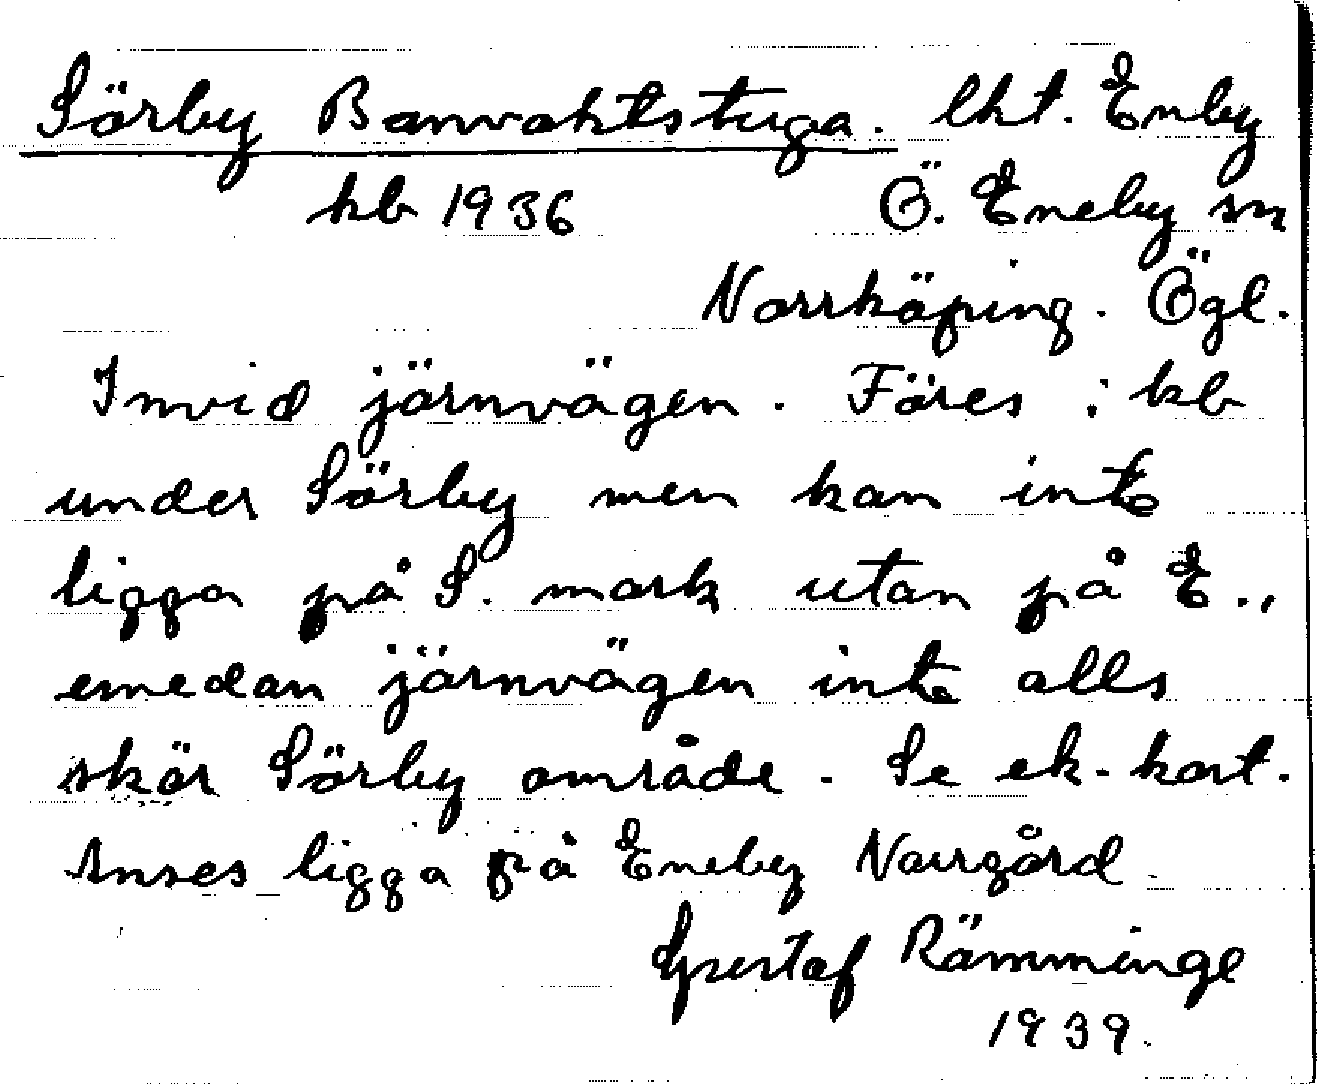 Sörby Banvaktstuga. lht. Eneby
kb 1936 Ö. Eneby sn
Norrköping. Ögl.
Invid järnvägen. Föres i kb
under Sörby men kan inte
ligga på S. mark utan på E.,
emedan järnvägen inte alls
skär Sörby område. Se ek-kart.
Anses ligga på Eneby Norrgård
Gustaf Rämminge
1939.